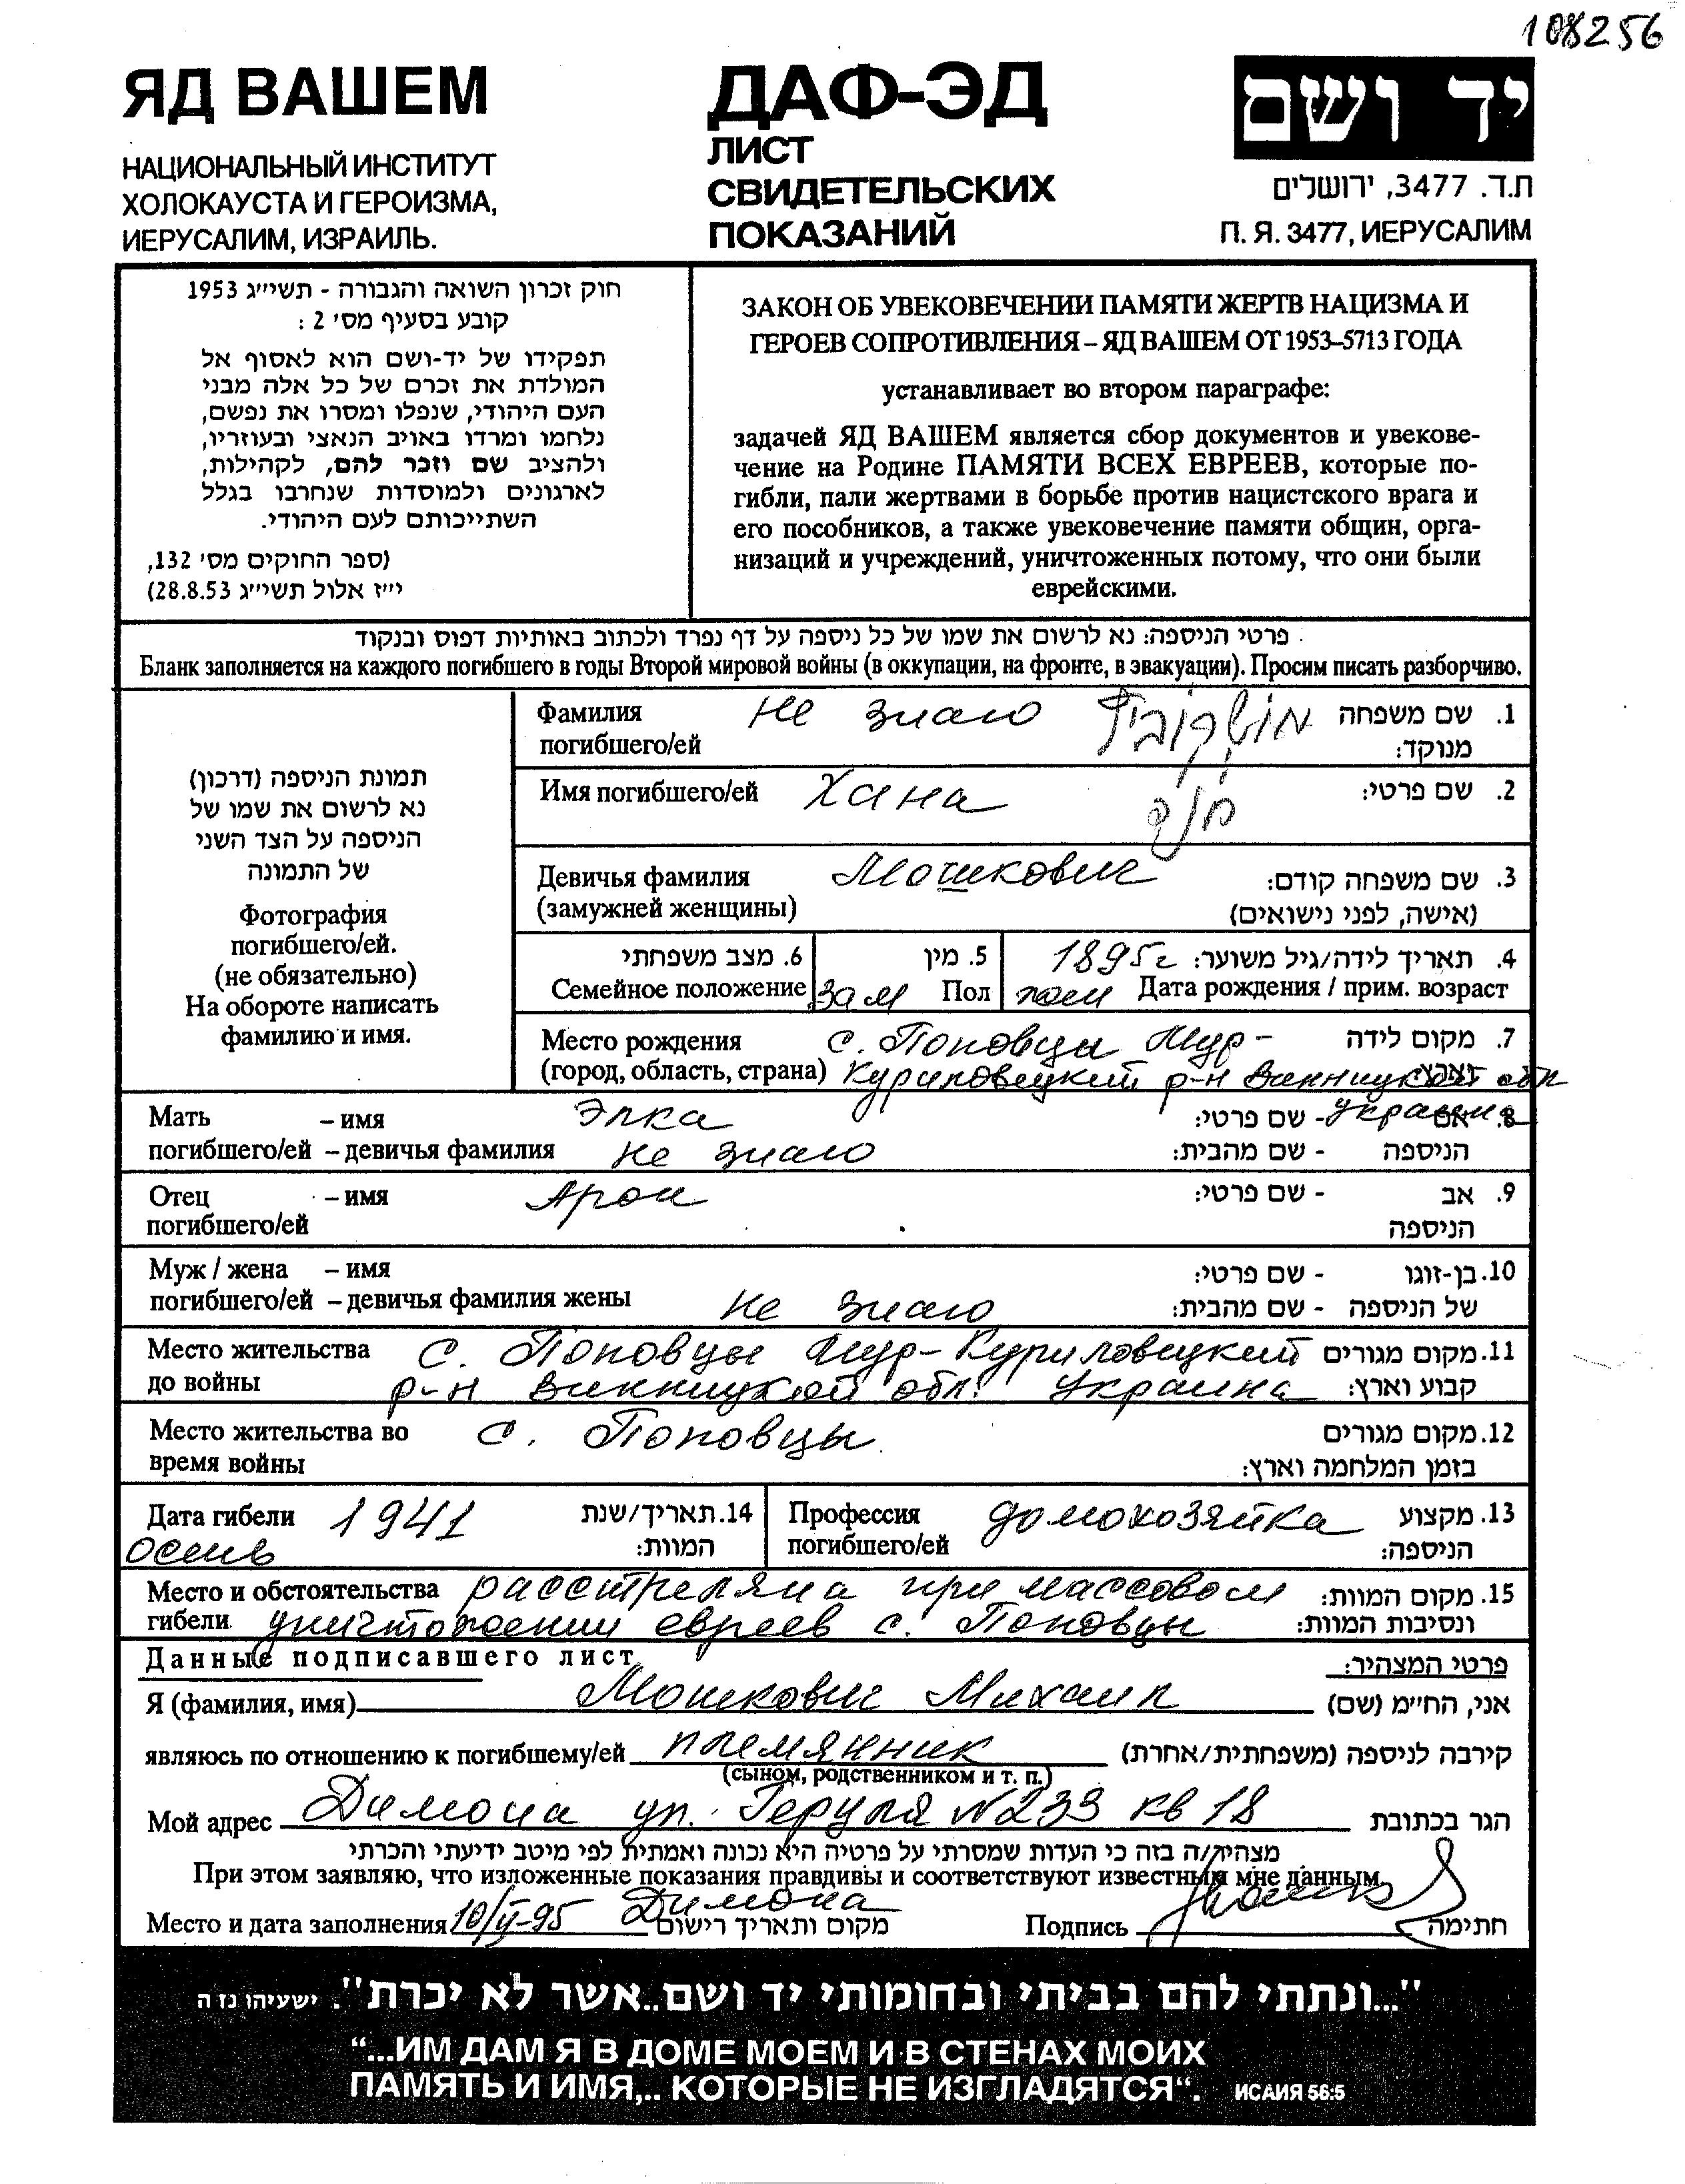 108256
ЯД ВАШЕМ
НАЦИОНАЛЬНЫЙ ИНСТИТУТ
ХОЛОКАУСТА И ГЕРОИЗМА,
ИЕРУСАЛИМ, ИЗРАИЛЬ.
ДАФ-ЭД
ЛИСТ
СВИДЕТЕЛЬСКИХ
ПОКАЗАНИЙ
יד ושם
ת.ד. 3477, ירושלים
П. Я. 3477, ИЕРУСАЛИМ
חוק זכרון השואה והגבורה - תשי״ג 1953
קובע בסעיף מס' 2 :
תפקידו של יד-ושם הוא לאסוף אל
המולדת את זכרם של כל אלה מבני
העם היהודי, שנפלו ומסרו את נפשם,
נלחמו ומרדו באויב הנאצי ובעוזריו,
ולהציב שם וזכר להם, לקהילות,
לארגונים ולמוסדות שנחרבו בגלל
השתייכותם לעם היהודי.
(ספר החוקים מס' 132,
י״ז אלול תשי״ג 28.8.53)
ЗАКОН ОБ УВЕКОВЕЧЕНИИ ПАМЯТИ ЖЕРТВ НАЦИЗМА И
ГЕРОЕВ СОПРОТИВЛЕНИЯ – ЯД ВАШЕМ ОТ 1953–5713 ГОДА
устанавливает во втором параграфе:
задачей ЯД ВАШЕМ является сбор документов и увекове-
чение на Родине ПАМЯТИ ВСЕХ ЕВРЕЕВ, которые по-
гибли, пали жертвами в борьбе против нацистского врага и
его пособников, а также увековечение памяти общин, орга-
низаций и учреждений, уничтоженных потому, что они были
еврейскими.
פרטי הניספה: נא לרשום את שמו של כל ניספה על דף נפרד ולכתוב באותיות דפוס ובנקוד
Бланк заполняется на каждого погибшего в годы Второй мировой войны (в оккупации, на фронте, в эвакуации). Просим писать разборчиво.
תמונת הניספה (דרכון)
נא לרשום את שמו של
הניספה על הצד השני
של התמונה
Фотография
погибшего/ей.
(не обязательно)
На обороте написать
фамилию и имя.
Фамилия не знаю מושקוביץ 1. שם משפחה
погибшего/ей מנוקד:
Имя погибшего/ей Хана חנה 2. שם פרטי:
Девичья фамилия Мошкович 3. שם משפחה קודם:
(замужней женщины) (אישה, לפני נישואים)
6. מצב משפחתי 5. מין 1895г 4. תאריך לידה/גיל משוער:
Семейное положение зам Пол жен Дата рождения / прим. возраст
Место рождения с. Поповцы Мур- 7. מקום לידה
(город, область, страна) Куриловецкий р-н Винницкой обл וארץ:
Мать – имя Элка Украина 8. אם - שם פרטי:
погибшего/ей – девичья фамилия не знаю הניספה - שם מהבית:
Отец – имя Арон 9. אב - שם פרטי:
погибшего/ей הניספה
Муж / жена – имя 10. בן-זוגו - שם פרטי:
погибшего/ей – девичья фамилия жены не знаю של הניספה - שם מהבית:
Место жительства с. Поповцы Мур-Куриловецкий 11. מקום מגורים
до войны р-н Винницкой обл. Украина קבוע וארץ:
Место жительства во с. Поповцы 12. מקום מגורים
время войны בזמן המלחמה וארץ:
Дата гибели 1941 14. תאריך/שנת
осень המוות:
Профессия домохозяйка 13. מקצוע
погибшего/ей הניספה:
Место и обстоятельства расстреляна при массовом 15. מקום המוות:
гибели уничтожении евреев с. Поповцы ונסיבות המוות:
Данные подписавшего лист פרטי המצהיר:
Я (фамилия, имя) Мошкович Михаил אני, הח״מ (שם)
являюсь по отношению к погибшему/ей племянник קירבה לניספה (משפחתית/אחרת)
(сыном, родственником и т. п.)
Мой адрес Димона ул. Геруля N233 кв 18 הגר בכתובת
מצהיר/ה בזה כי העדות שמסרתי על פרטיה היא נכונה ואמתית לפי מיטב ידיעתי והכרתי
При этом заявляю, что изложенные показания правдивы и соответствуют известным мне данным.
Место и дата заполнения 10/II-95 Димона מקום ותאריך רישום Подпись חתימה
"...ונתתי להם בביתי ובחומותי יד ושם..אשר לא יכרת". ישעיהו נז ה
“...ИМ ДАМ Я В ДОМЕ МОЕМ И В СТЕНАХ МОИХ
ПАМЯТЬ И ИМЯ,.. КОТОРЫЕ НЕ ИЗГЛАДЯТСЯ“. ИСАИЯ 56:5